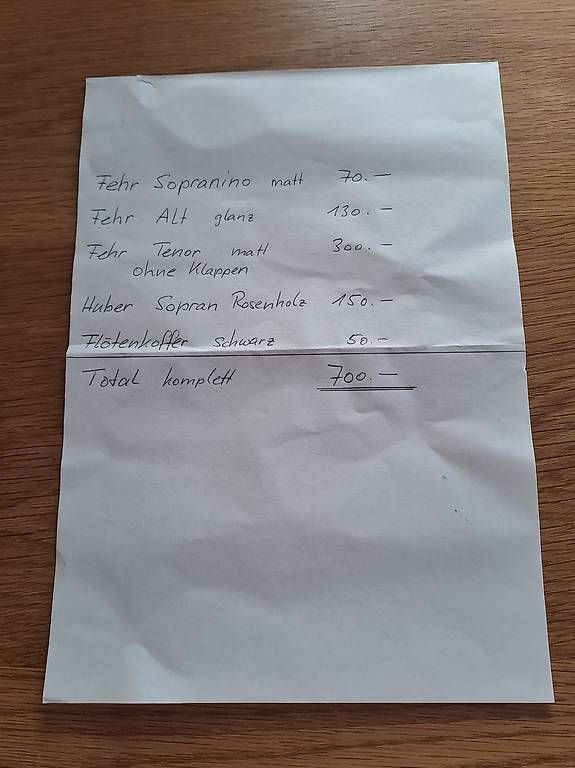 Fehr Sopranino matt 70.–
Fehr Alt glanz 130.–
Fehr Tenor matt 300.–
ohne Klappen
Huber Sopran Rosenholz 150.–
Flötenkoffer schwarz 50.–
Total komplett 700.–